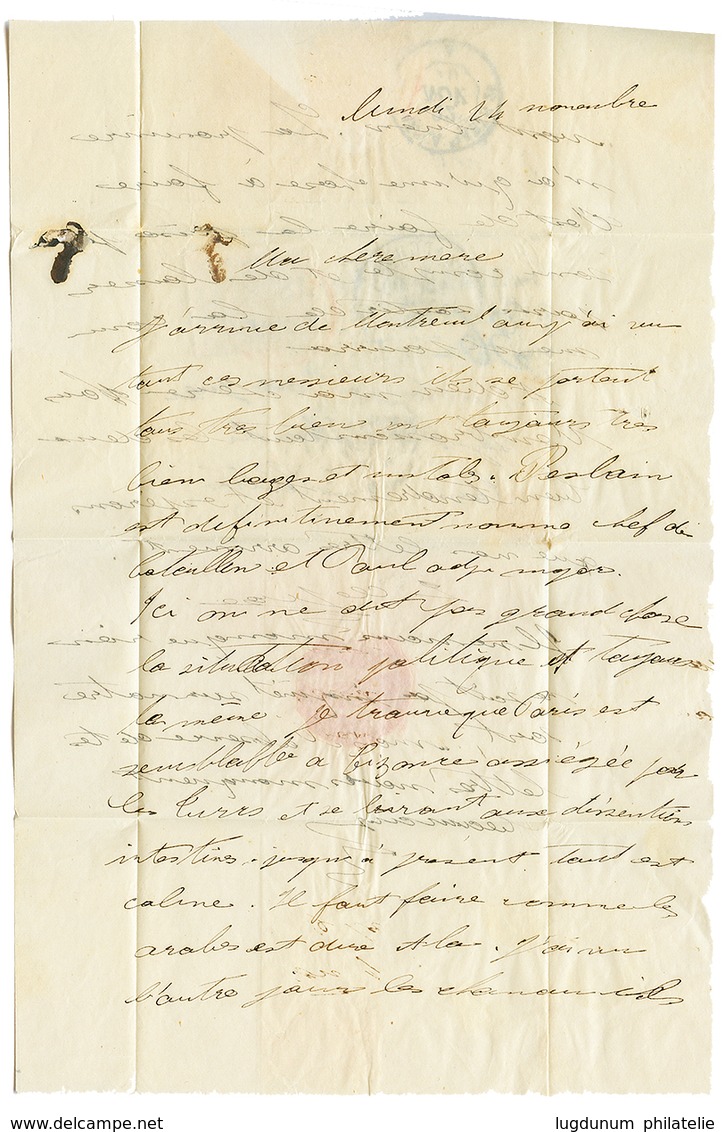 lundi 14 novembre
Ma chere mere
J'arrive de Montreuil ou j'ai vu
tout ces messieurs ils se portent
tous tres bien sont toujours tres
bien loges et
est definitivement nomme chef de
bataillon et Paul adj major.
Ici on ne dit pas grand chose
la situation politique est toujours
la même. Je trouve que Paris est
semblable a Bizance assiégée par
les turcs et se livrant aux dissentions
intestines. jusqu'à présent tout est
calme. Il faut faire comme les
arabes et dire Alla. J'ai vu
l'autre jours les
lugdunum philatelie